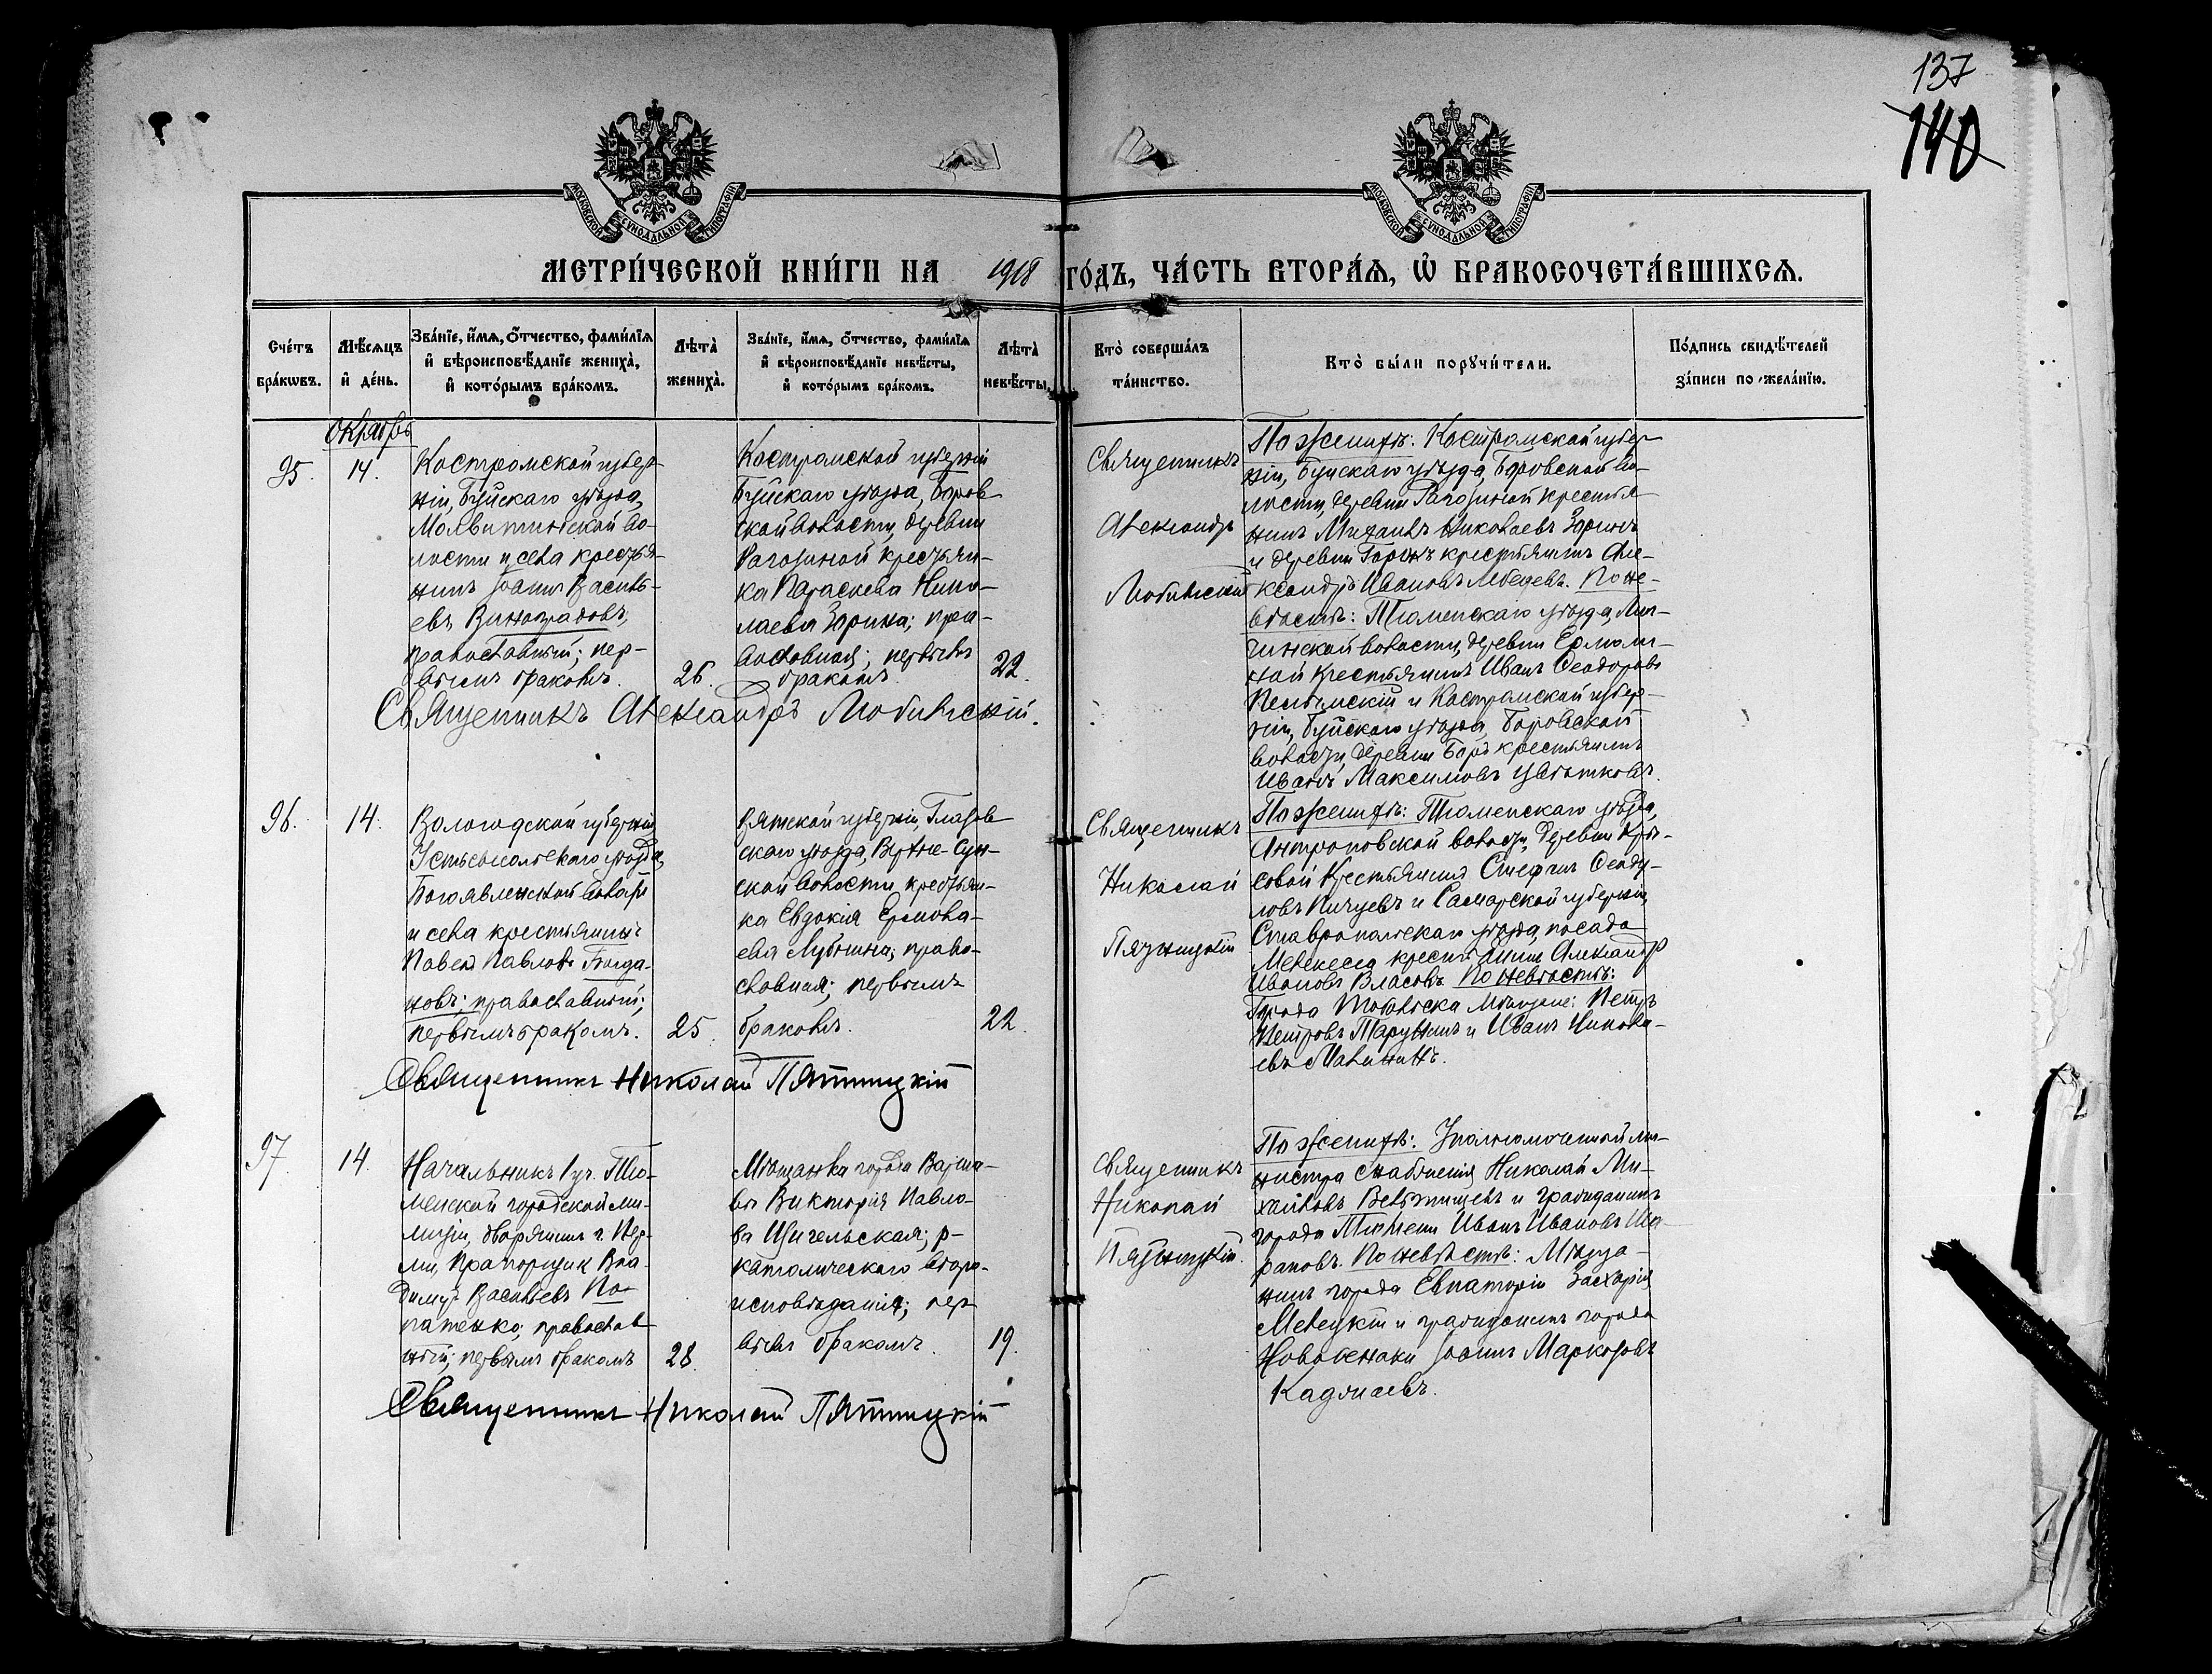 137
140
МОСКОВСКОЙ СѴНОДАЛЬНОЙ ТИПОГРАФІИ
МОСКОВСКОЙ СѴНОДАЛЬНОЙ ТИПОГРАФІИ
МЕТРИ́ЧЕСКОЙ КНИ́ГИ НА 1918 ГО́ДЪ, ЧА́СТЬ ВТОРА́Ѧ, Ѽ БРАКОСОЧЕТА́ВШИХСѦ.
Сче́тъ
бра́кѡвъ.
Мѣ́сѧцъ
и҆ де́нь.
Зва́нїе, и҆́мѧ, ѻ҆́тчество, фами́лїѧ
и҆ вѣроисповѣ́данїе жениха̀,
и҆ кото́рымъ бра́комъ.
Лѣта̀
жениха̀.
Зва́нїе, и҆́мѧ, ѻ҆́тчество, фами́лїѧ
и҆ вѣроисповѣ́данїе невѣ́сты,
и҆ кото́рымъ бра́комъ.
Лѣта̀
невѣ́сты.
Кто̀ соверша́лъ
та́инство.
Кто̀ бы́ли порꙋчи́тели.
По́дпись свидѣ́телей
за́писи по жела́нїю.
Октябрь
95.
14.
Костромской губер-
ніи, Буйскаго уѣзда,
Молвитинской во-
лости и села крестья-
нинъ Іоаннъ Василь-
евъ Виноградовъ,
православный; пер-
вымъ бракомъ.
26.
Костромской губерніи
Буйскаго уѣзда, Боров-
ской волости, деревни
Рагозиной крестьян-
ка Параскева Нико-
лаева Зорина; пра-
вославная; первымъ
бракомъ.
22.
Священникъ
Александръ
Любимскій
По женихѣ: Костромской губер-
ніи, Буйскаго уѣзда, Боровской во-
лости, деревни Рагозиной крестья-
нинъ Михаилъ Николаевъ Зоринъ
и деревни крестьянинъ Але-
ксандръ Ивановъ Лебедевъ. По не-
вѣстѣ: Тюменскаго уѣзда,
волости, деревни
крестьянинъ Иванъ Ѳеодоровъ
и Костромской губер-
ніи, Буйскаго уѣзда, Боровской
волости, деревни Боръ крестьянинъ
Иванъ Максимовъ Цвѣтковъ.
Священникъ Александръ Любимскій.
96.
14.
Вологодской губерніи
Устьсысольскаго уѣзда,
Богоявленской волости
и села крестьянинъ
Павелъ Павловъ Богда-
новъ; православный;
первымъ бракомъ.
25.
Вятской губерніи, Глазов-
скаго уѣзда, Верхне-Сун-
ской волости, крестьян-
ка Евдокія Ермола-
ева Лубнина; право-
славная; первымъ
бракомъ.
22.
Священникъ
Николай
Пятницкій
По женихѣ: Тюменскаго уѣзда,
Антроповской волости, деревни
крестьянинъ Стефанъ Ѳеоду-
ловъ Пичуевъ и Самарской губерніи,
Ставропольскаго уѣзда, посада
Мелекесса крестьянинъ Александръ
Ивановъ Власовъ. По невѣстѣ:
Города Тобольска мѣщане: Петръ
Петровъ и Иванъ Никола-
евъ Малининъ.
Священникъ Николай Пятницкій
97.
14.
Начальникъ 1 уч. Тю-
менской городской ми-
лиціи, дворянинъ г. Пер-
ми, Прапорщикъ Вла-
димиръ Васильевъ По-
патенко; православ-
ный; первымъ бракомъ
28.
Мѣщанка города Варша-
вы Викторія Павло-
ва Щигельская; р-
католическаго вѣро-
исповѣданія; пер-
вымъ бракомъ.
19.
Священникъ
Николай
Пятницкій.
По женихѣ: Уполномоченный ми-
нистра снабженія Николай Ми-
хайловъ Вельтищевъ и гражданинъ
города Тюмени Иванъ Ивановъ Ша-
раповъ. По невѣстѣ: Мѣща-
нинъ города Евпаторіи Захарія
Мелецкій и гражданинъ города
Іоаннъ Марковъ
Священникъ Николай Пятницкій